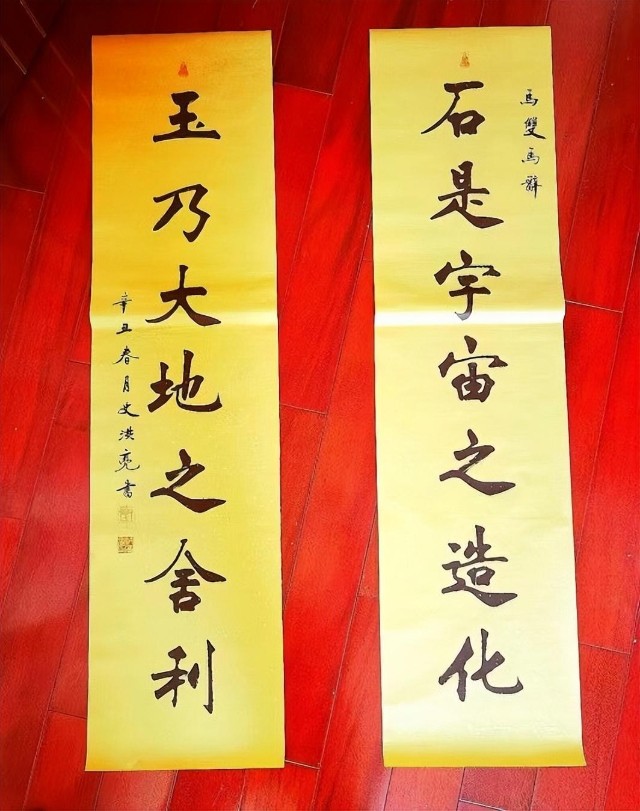 馬雙馬辭
石是宇宙之造化
玉乃大地之舍利
辛丑春月史洪亮書